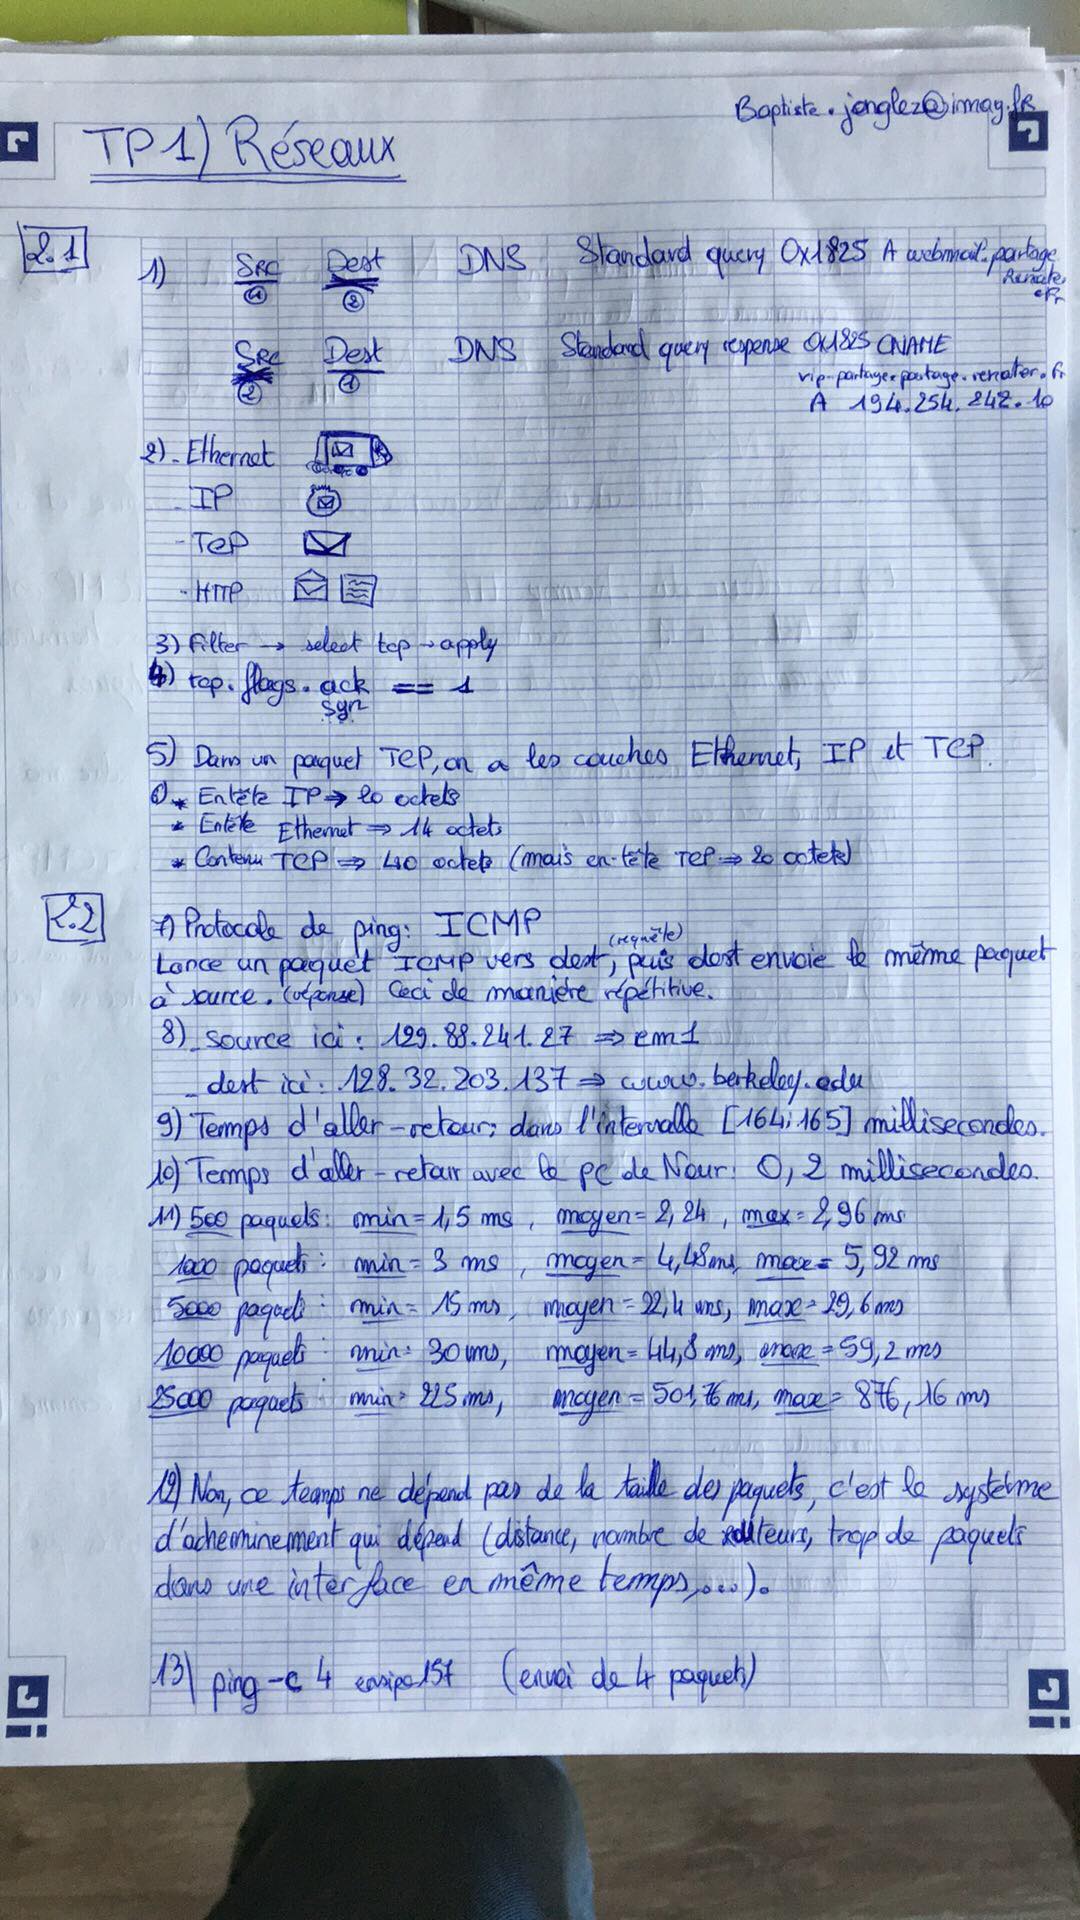 Baptiste.jonglez@imag.fr
TP1) Réseaux
2.1
1) Src Dest DNS Standard query 0x1825 A webmail.partage
① ② Renater
.fr
Src Dest DNS Standard query response 0x1825 CNAME
② ① vip-partage.partage.renater.fr
A 194.254.242.10
2) - Ethernet
- IP
- TCP
- HTTP
3) Filter → select tcp → apply
4) tcp.flags.ack == 1
syn
5) Dans un paquet TCP, on a les couches Ethernet, IP et TCP.
6) * Entête IP ⇒ 20 octets
* Entête Ethernet ⇒ 14 octets
* Contenu TCP ⇒ 40 octets (mais en-tête TCP ⇒ 20 octets)
2.2
7) Protocole de ping: ICMP
Lance un paquet ICMP vers dest, (requête) puis dest envoie le même paquet
à source. (réponse) Ceci de manière répétitive.
8) - source ici : 129.88.241.27 ⇒ em1
- dest ici : 128.32.203.137 ⇒ www.berkeley.edu
9) Temps d'aller-retour: dans l'intervalle [164;165] millisecondes.
10) Temps d'aller-retour avec le pc de Nour: 0,2 millisecondes.
11) 500 paquets: min = 1,5 ms, moyen = 2,24, max = 2,96 ms
1000 paquets : min = 3 ms, moyen = 4,48 ms, max = 5,92 ms
5000 paquets : min = 15 ms, moyen = 22,4 ms, max = 29,6 ms
10000 paquets : min = 30 ms, moyen = 44,8 ms, max = 59,2 ms
25000 paquets : min = 225 ms, moyen = 501,76 ms, max = 876,16 ms
12) Non, ce temps ne dépend pas de la taille des paquets, c'est le système
d'acheminement qui dépend (distance, nombre de routeurs, trop de paquets
dans une interface en même temps,...).
13) ping -c 4 ensipc157 (envoi de 4 paquets)